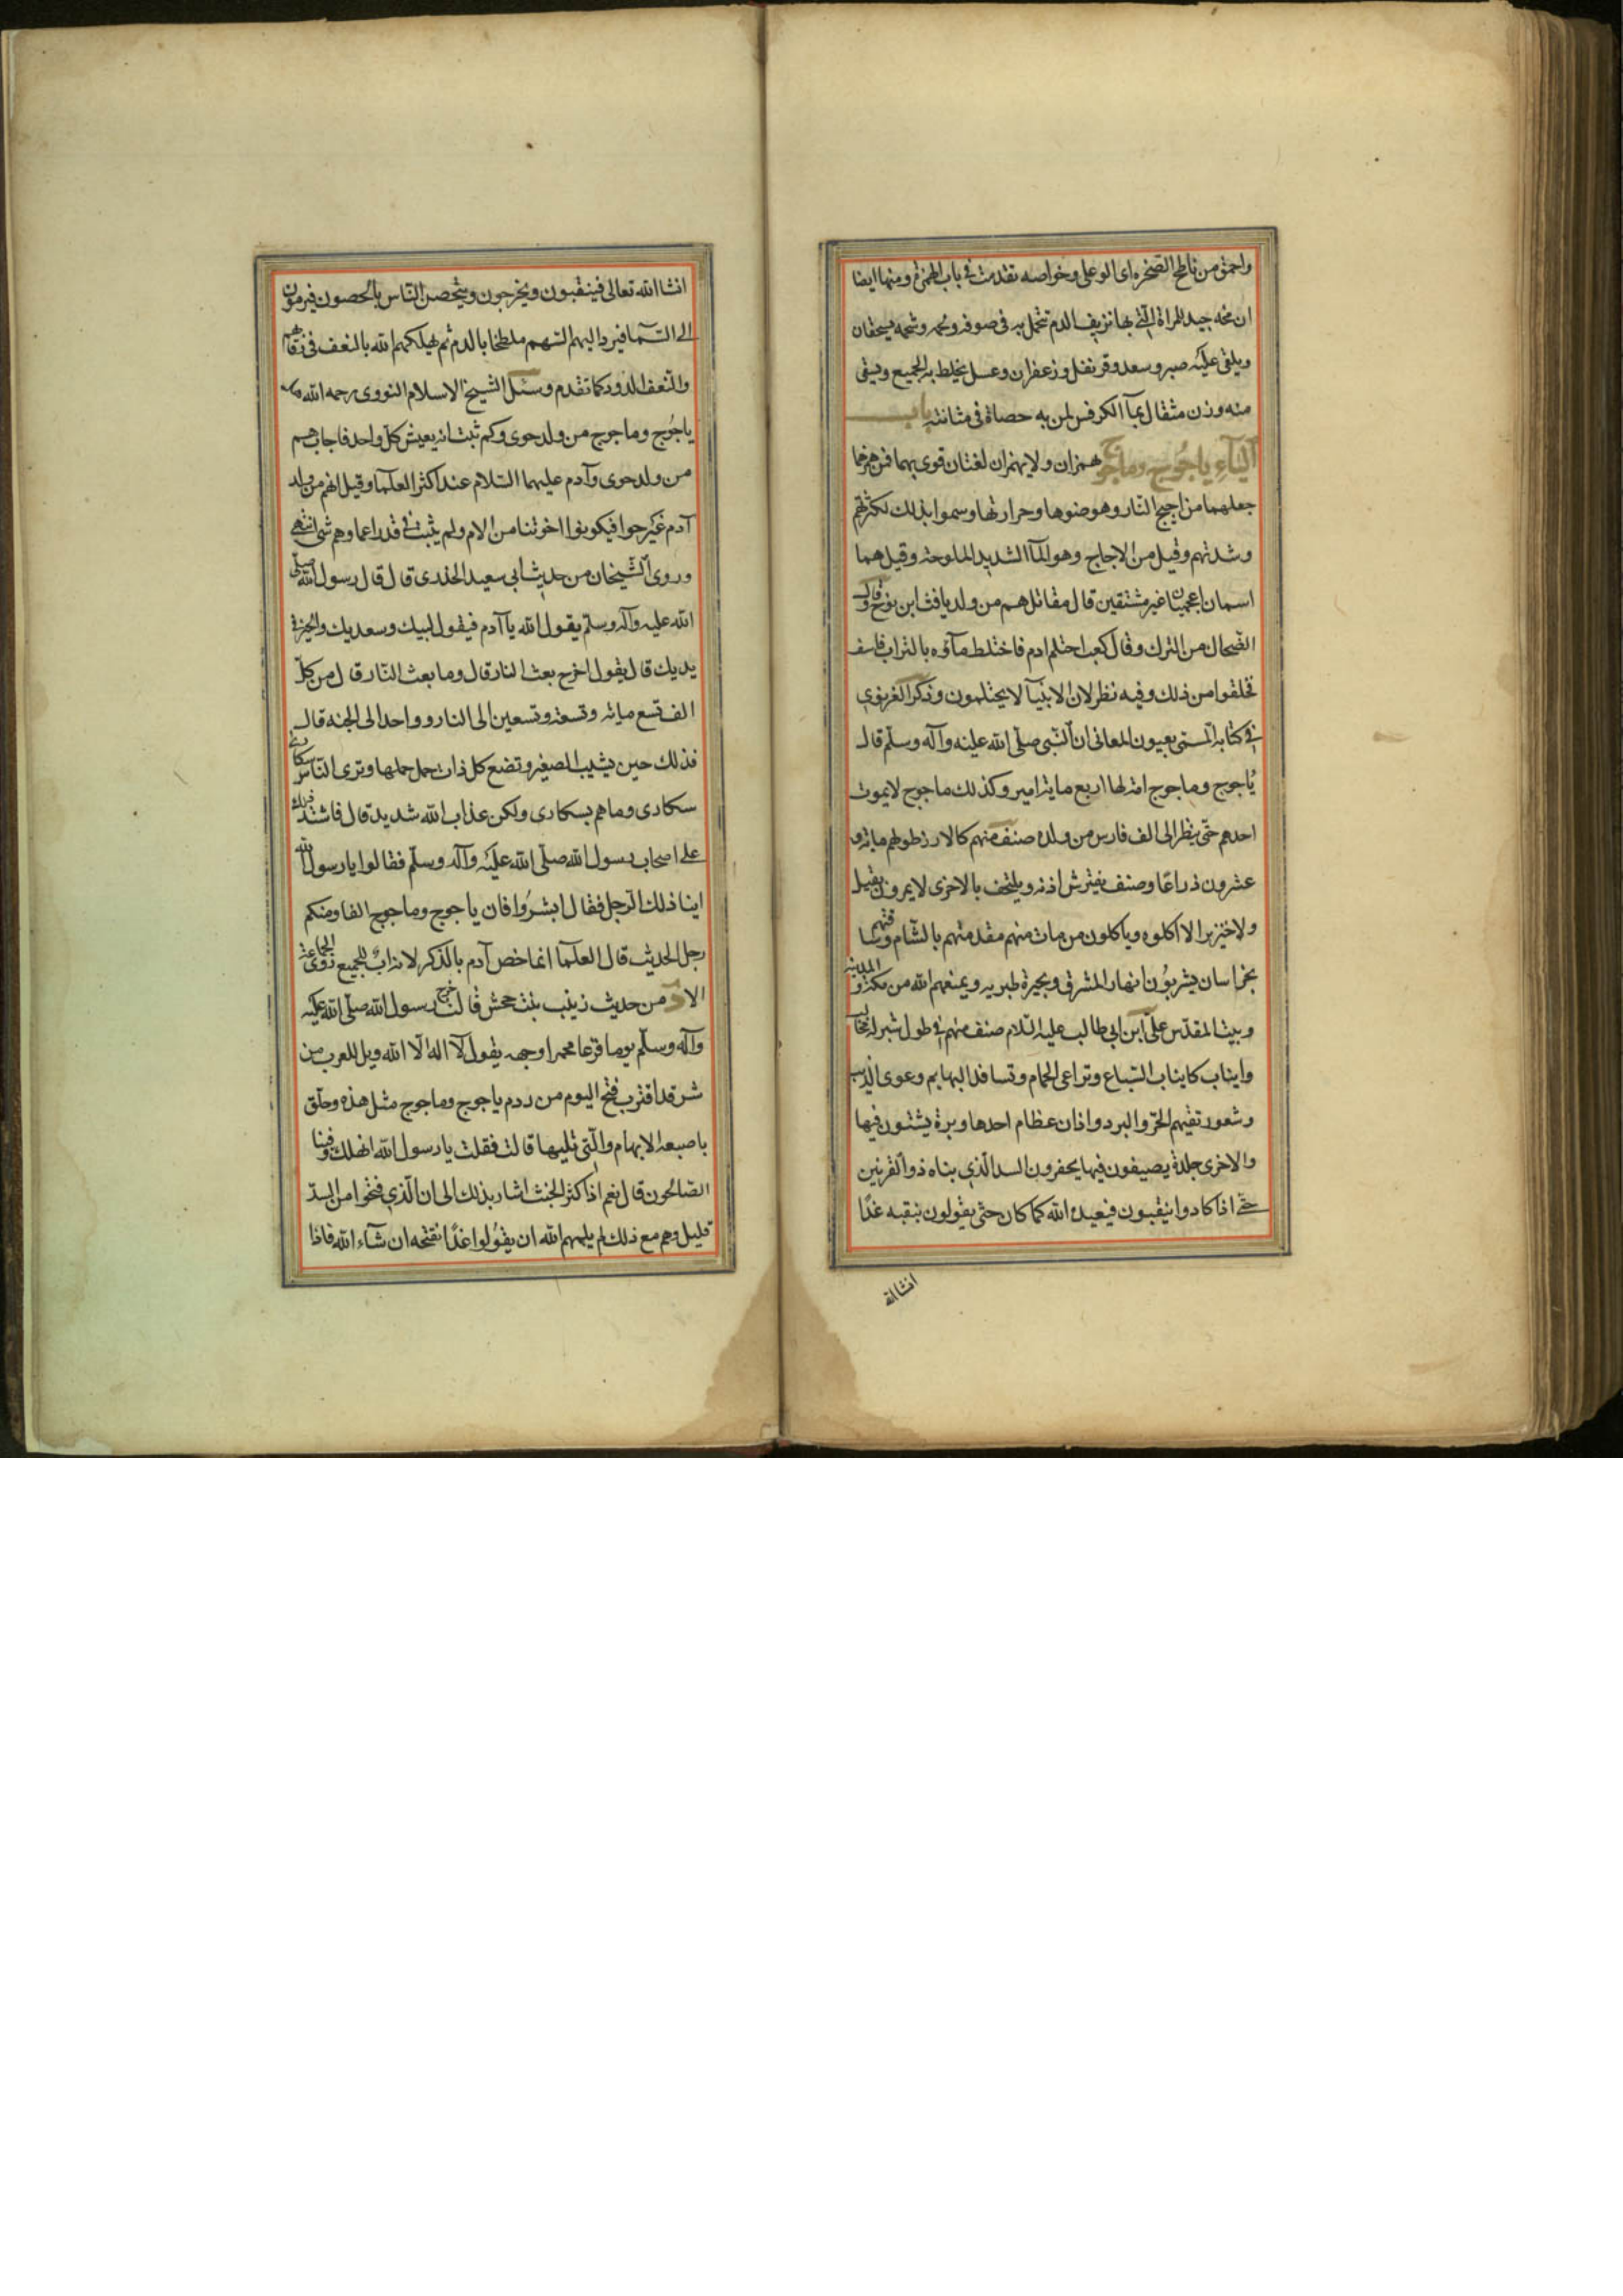 واحمق من ناطح الصخره اى الوعل وخواصه تقدمت فى باب الهمزة ومنها ايضا
ان مخه جيد للمراة التى بها نزيف الدم تتحمل به فى صوفه ولحمه وشحمه يسحقان
ويلقى عليه صبر وسعد وقرنفل وزعفران وعسل يخلط به الجميع ويسقى
منه وزن مثقال بمآ الكرفس لمن به حصاة فى مثانته باب
اليآء ياجوج وماجوج يهمزان ولا يهمزان لغتان قرى بهما فمن همزها
جعلهما من اجيج النار وهو ضوها وحرارتها وسموا بذلك لكثرتهم
وشدتهم وقيل من الاجاج وهو المآ الشديد الملوحة وقيل هما
اسمان اعجميان غير مشتقين قال مقاتل هم من ولد يافث ابن نوح وقال
الضحاك من الترك وقال كعب احتلم ادم فاختلط مآؤه بالتراب فاسف
فخلقوا من ذلك وفيه نظر لان الانبيآ لا يحتلمون وذكر الغزنوى
فى كتابه المسمى بعيون المعانى ان النبى صلى الله عليه وآله وسلم قال
ياجوج وماجوج امة لها اربع ماية امير وكذلك ماجوج لا يموت
احدهم حتى ينظر الى الف فارس من ولده صنف منهم كالارز طولهم ماية و
عشرون ذراعا وصنف يفترش اذنه ويلتحف بالاخرى لا يمرون بفيل
ولا خنزير الا اكلوه وياكلون من مات منهم مقدمتهم بالشام وساقتهم
بخراسان يشربون انهار المشرق وبحيرة طبريه ويمنعهم الله من مكة والمدينه
وبيت المقدس على ابن ابى طالب عليه السلام صنف منهم فى طول شبر له مخالب
وانياب كانياب السباع وتداعى الحمام وتسافد البهايم وعوى الذيب
وشعور تقيهم الحر والبرد واذان عظام احدها وبرة يشتون فيها
والاخرى جلدة يصيفون فيها يحفرون السد الذى بناه ذو القرنين
حتى اذا كادوا ينقبون فيعيده الله كما كان حتى يقولون ننقبه غدا
انشا الله
انشا الله تعالى فينقبون ويخرجون ويتحصن الناس بالحصون فيرمون
الى السمآ فيرد اليهم السهم ملطخا بالدم ثم يهلكهم الله بالنغف فى رقابهم
والنغف الدود كما تقدم وسئل الشيخ الاسلام النووى رحمه الله هل
ياجوج وماجوج من ولد حوى وكم ثبت انه يعيش كل واحد فاجاب هم
من ولد حوى وآدم عليهما السلام عند اكثر العلما وقيل انهم من ولد
آدم غير حوا فيكونوا اخوتنا من الام ولم يثبت فى قدر اعمارهم شى انتهى
وروى الشيخان من حديث ابى سعيد الخدرى قال قال رسول الله صلى
الله عليه وآله وسلم يقول الله يا آدم فيقول لبيك وسعديك والخير فى
يديك قال يقول اخرج بعث النار قال وما بعث النار قال من كل
الف تسع ماية وتسعة وتسعين الى النار وواحد الى الجنه قال
فذلك حين يشيب الصغير وتضع كل ذات حمل حملها وترى الناس سكارى
سكارى وما هم بسكارى ولكن عذاب الله شديد قال فاشتد ذلك
على اصحاب رسول الله صلى الله عليه وآله وسلم فقالوا يا رسول الله
اينا ذلك الرجل فقال ابشروا فان ياجوج وماجوج الفا ومنكم
رجل الحديث قال العلمآ انما خص آدم بالذكر لانه اب للجميع روى الجماعة
الا من حديث زينب بنت جحش قالت خرج رسول الله صلى الله عليه
وآله وسلم يوما فزعا محمرا وجهه يقول لآ اله الا الله ويل للعرب من
شر قد اقترب فتح اليوم من ردم ياجوج وماجوج مثل هذه وحلق
باصبعه الابهام والتى تليها قالت فقلت يا رسول الله انهلك وفينا
الصالحون قال نعم اذا كثر الخبث اشار بذلك الى ان الذى فتحوا من السد
قليل وهم مع ذلك لم يلهمهم الله ان يقولوا غدا نفتحه ان شآء الله فاذا